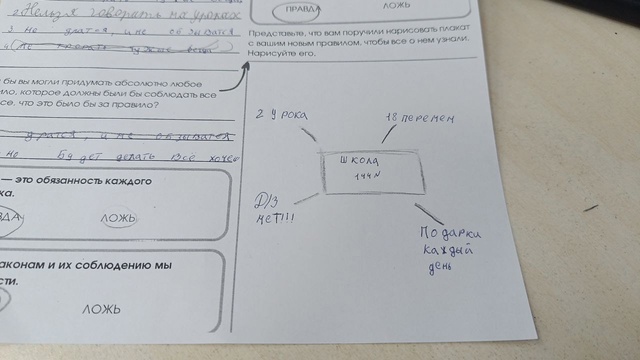 2. Нельзя говорить на уроках
3 не дратся, и не обзыватся
4
бы вы могли придумать абсолютно любое
ило, которое должны были бы соблюдать все
се, что это было бы за правило?
дратся, и не обзыватся
не будет делать все
— это обязанность каждого
ка.
ВДА
ЛОЖЬ
аконам и их соблюдению мы
сти.
ЛОЖЬ
ПРАВДА
ЛОЖЬ
Представьте, что вам поручили нарисовать плакат
с вашим новым правилом, чтобы все о нем узнали.
Нарисуйте его.
2 урока
18 перемен
школа
144 N
Д/З
нет!!!
Подарки
каждый
день